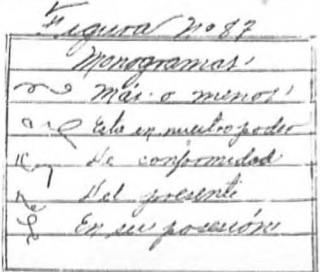 Figura Nº 87
Monogramas
Más o menos
Esta en nuestro poder
De conformidad
Del presente
En su posesión